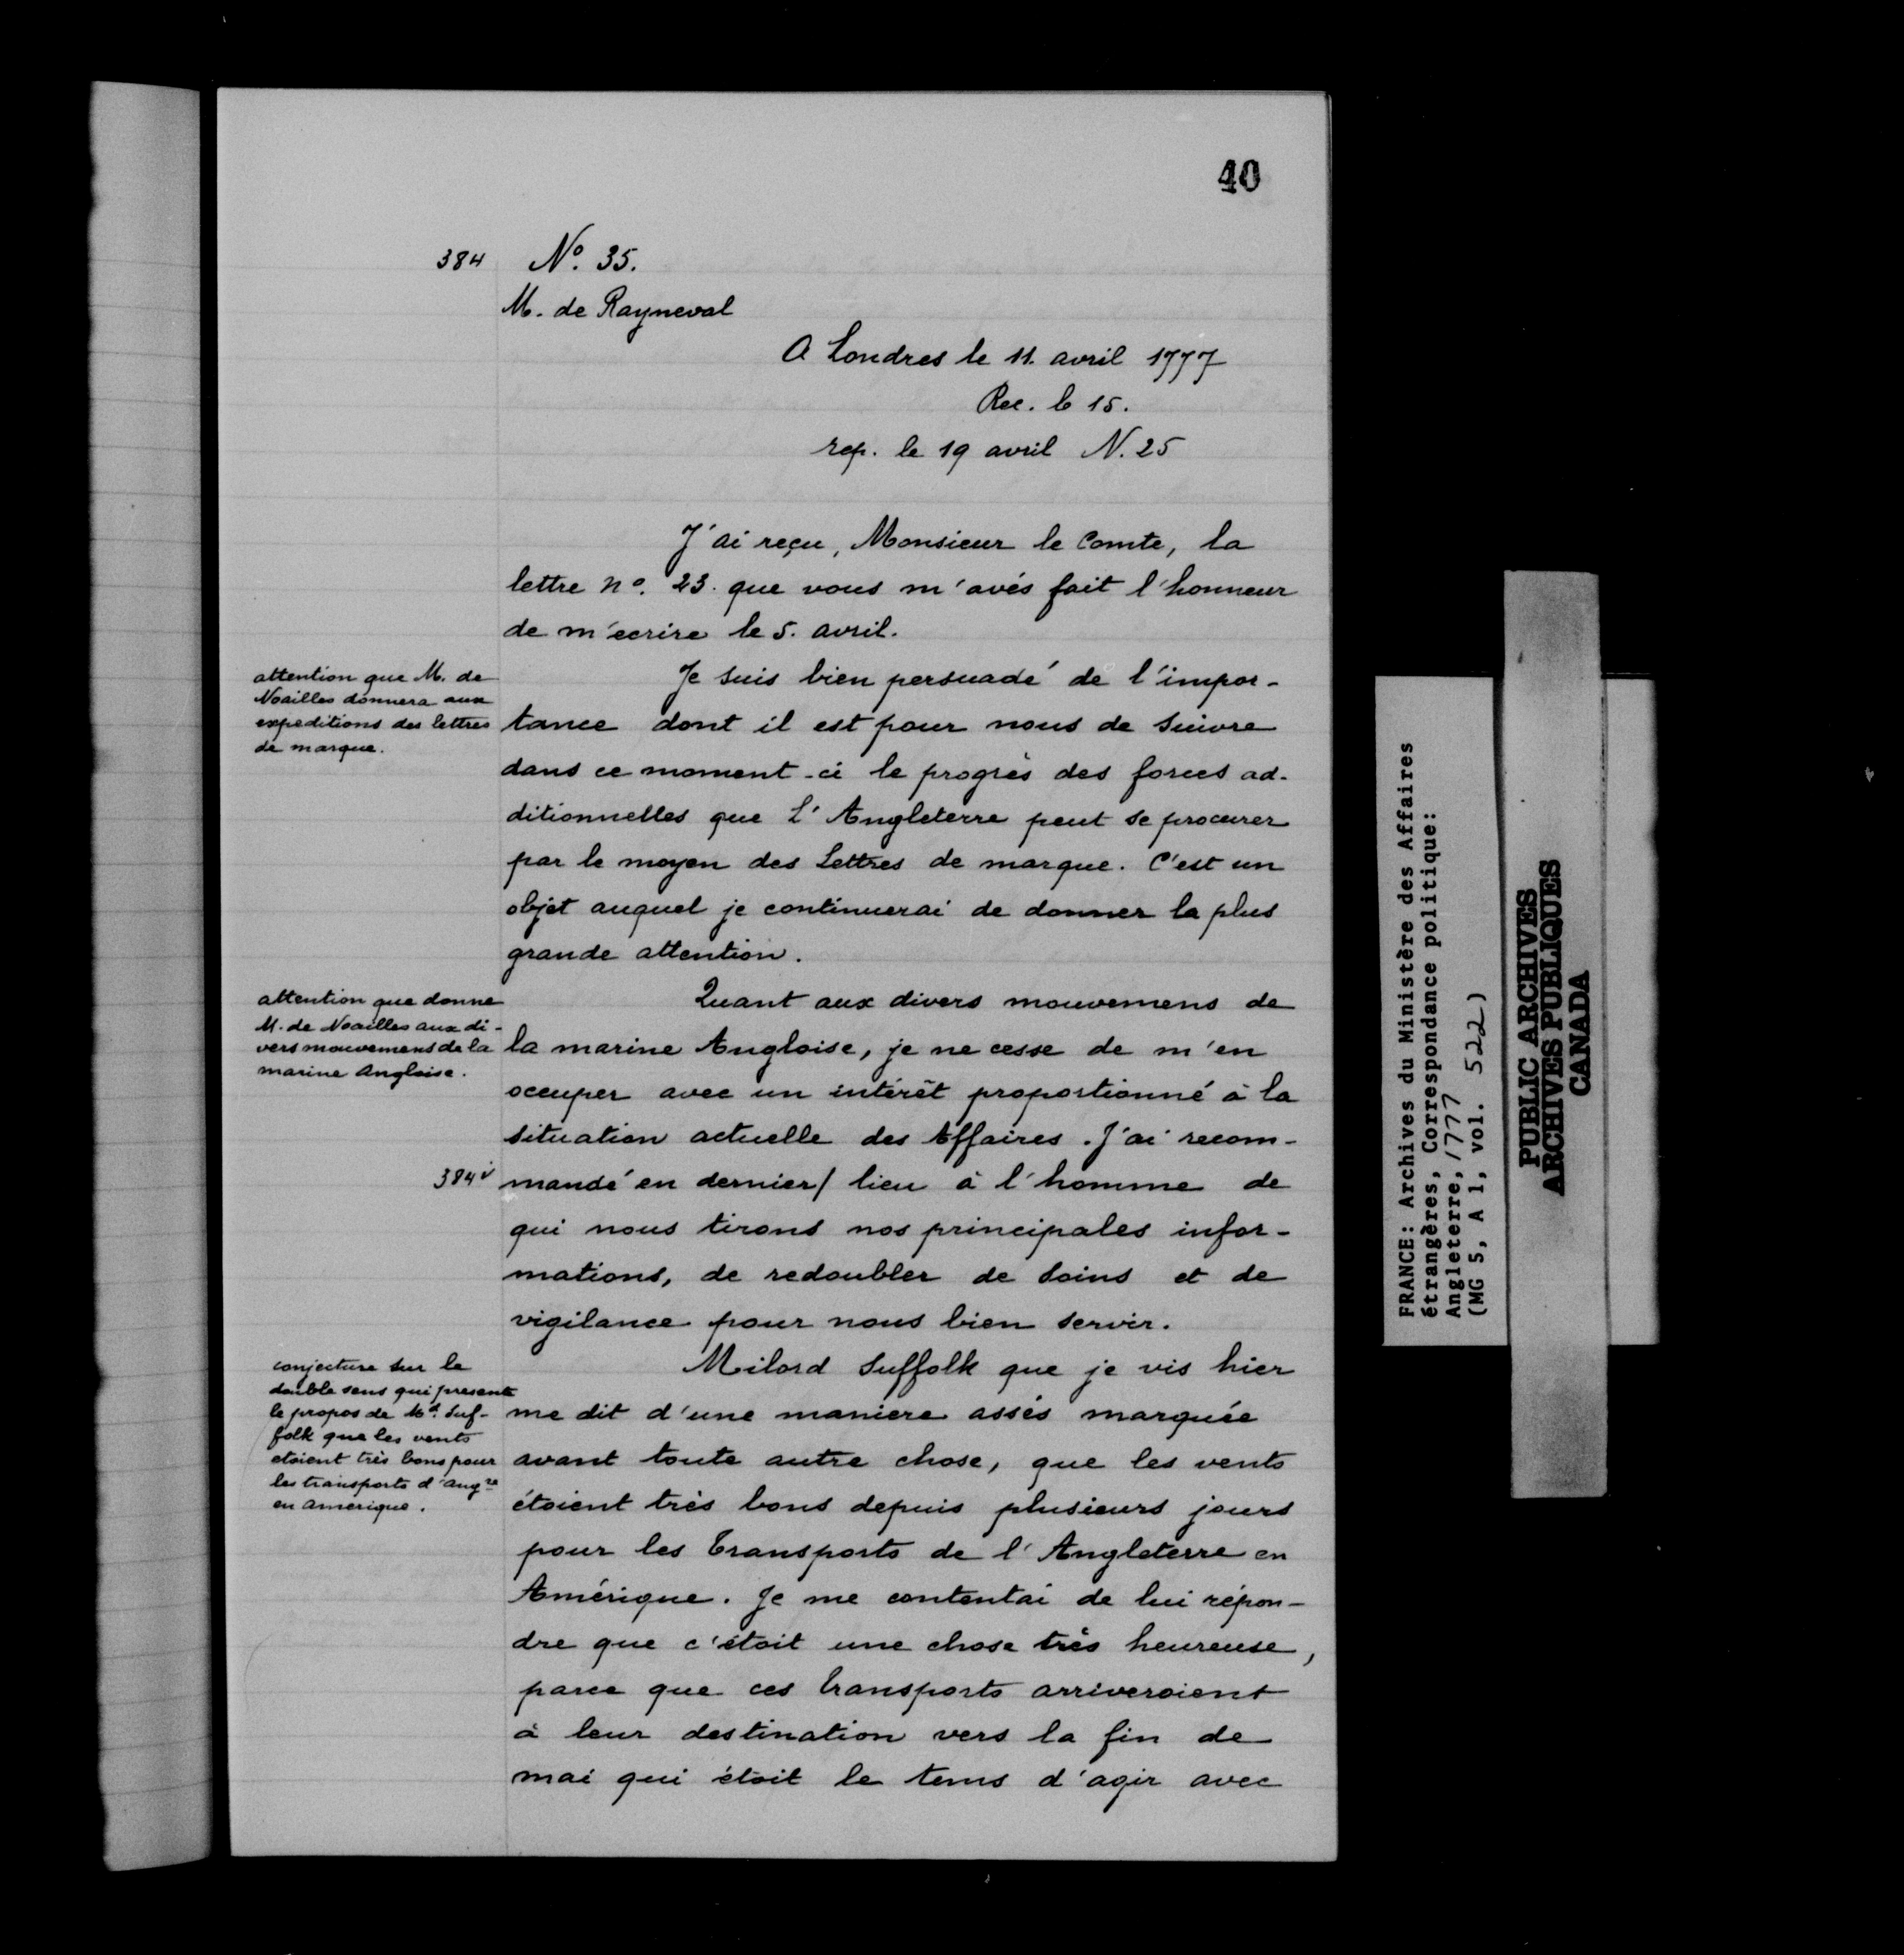 40
384 Nº. 35.
M. de Rayneval
A Londres le 11. avril 1777
Rec. le 15.
rep. le 19 avril N. 25
J'ai reçu, Monsieur le Comte, la
lettre nº. 23. que vous m'avés fait l'honneur
de m'ecrire le 5. avril.
attention que M. de
Noailles donnera aux
expeditions des lettres
de marque.
Je suis bien persuadé de l'impor-
tance dont il est pour nous de suivre
dans ce moment-ci le progrès des forces ad-
ditionnelles que L'Angleterre peut se procurer
par le moyen des Lettres de marque. C'est un
objet auquel je continuerai de donner la plus
grande attention.
attention que donne
M. de Noailles aux di-
vers mouvemens de la
marine Angloise.
Quant aux divers mouvemens de
la marine Angloise, je ne cesse de m'en
occuper avec un intérêt proportionné à la
situation actuelle des Affaires. J'ai recom-
384v mandé en dernier/ lieu à l'homme de
qui nous tirons nos principales infor-
mations, de redoubler de soins et de
vigilance pour nous bien servir.
conjecture sur le
double sens qui presente
le propos de Md. Suf-
folk que les vents
etoient très bons pour
les transports d'Angre
en amerique.
Milord Suffolk que je vis hier
me dit d'une maniere assés marquée
avant toute autre chose, que les vents
étoient très bons depuis plusieurs jours
pour les Transports de l'Angleterre en
Amérique. Je me contentai de lui répon-
dre que c'étoit une chose très heureuse,
parce que ces Transports arriveroient
à leur destination vers la fin de
mai qui étoit le tems d'agir avec
FRANCE: Archives du Ministère des Affaires
étrangères, Correspondance politique:
Angleterre, 1777
(MG 5, A 1, vol. 522)
PUBLIC ARCHIVES
ARCHIVES PUBLIQUES
CANADA